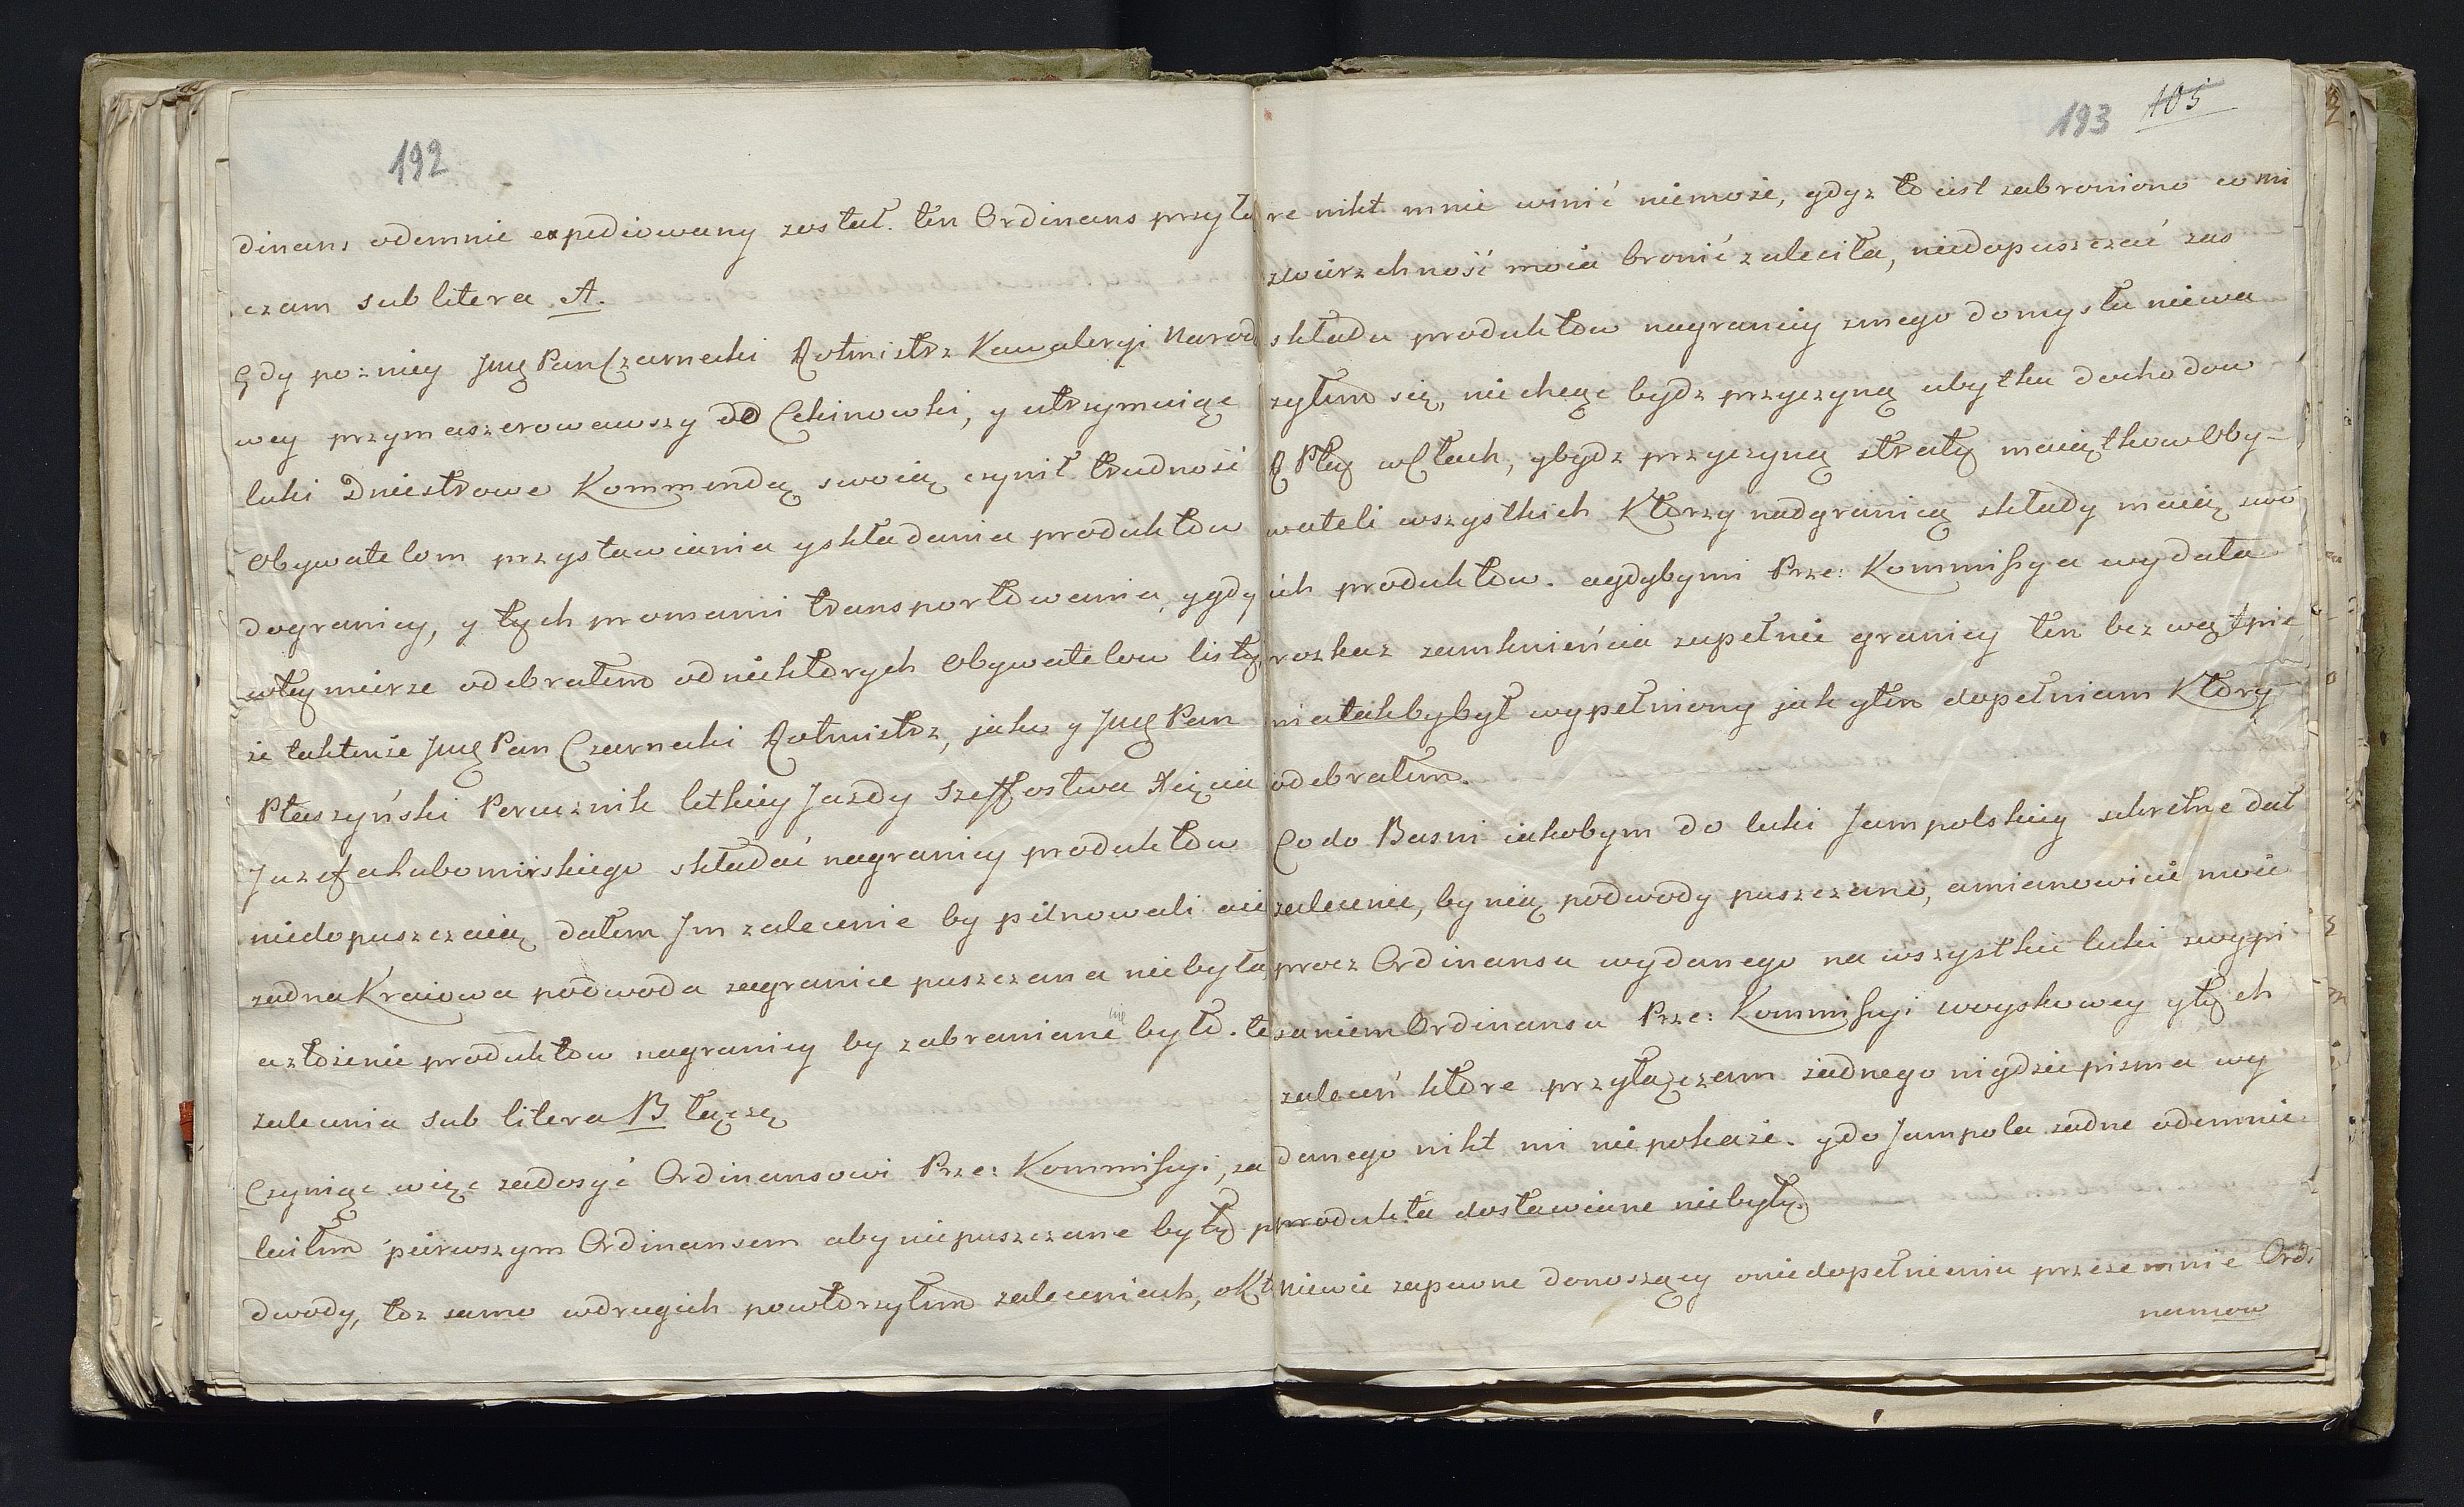 192
dinans odemnie expediowany został. ten Ordinans przyłą
czam sub litera A.
Gdy pozniey Jmg Pan Czarnecki Rotmistrz Kawaleryi Narodo
wey przymaszerowawszy do Cekinowki, y utrzymuiąc
luki Dniestrowe Kommendą swoią czynił trudność
Obywatelom przystawiania y składania produktow
dogranicy, y tych promami transportowania, y gdy
wtey mierze odebrałem odniektorych Obywatelow listy
że taktenże Jmg Pan Czarnecki Rotmistrz, jako y Jmg Pan
Ptaszyński Porucznik letkiey Jazdy Szeffostwa Xięcia
Juzefa Lubomirskiego składać nagranicy produktow
niedopuszczaią dałem Jm zalecenie by pilnowali aże
żadna Kraiowa podwoda zagranice puszczana niebyła
azłożenie produktow nagranicy by zabraniane nie było. te
zalecenia sub litera B łączę
Czyniąc więc zadosyć Ordinansowi Prze: Kommissyi, za
leciłem pierwszym Ordinansem aby niepuszczane były po
dwody, toż samo wdrugich powtorzyłem zaleceniach, okto
193 105
re nikt mnie winić niemoże, gdyż to iest zabroniono co mi
zwierzchność moia bronić zaleciła, niedopuszczać zas
składu produktow nagranicy zmego domysłu niewa
żyłem się, nie chcąc bydz przyczyną ubytku dochodow
R Pltey wCłach, ybydz przyczyną straty maiątkow Oby-
wateli wszystkich Ktorzy nadgranicą składy maią swo
ich produktow. agdybymi Prze: Kommissya wydała
rozkaz zamknieńcia zupełnie granicy ten bez wątpie
nia takby był wypełniony jak y ten dopełniam Ktory
odebrałem.
Co do Basni iakobym do luki Jampolskiey sekretne dał
zalecenie, by nią podwody puszczano, amianowicie moie
procz Ordinansu wydanego na wszystkie luki zwypi
saniem Ordinansu Prze: Kommissyi woyskowey y tych
zaleceń ktore przyłączam żadnego nigdzie pisma wy
danego nikt mi nie pokaże. y do Jampola żadne odemnie
produkta dostawiane niebyły.
niewie zapewne donoszący oniedopełnieniu przezemnie Ordi
nansow